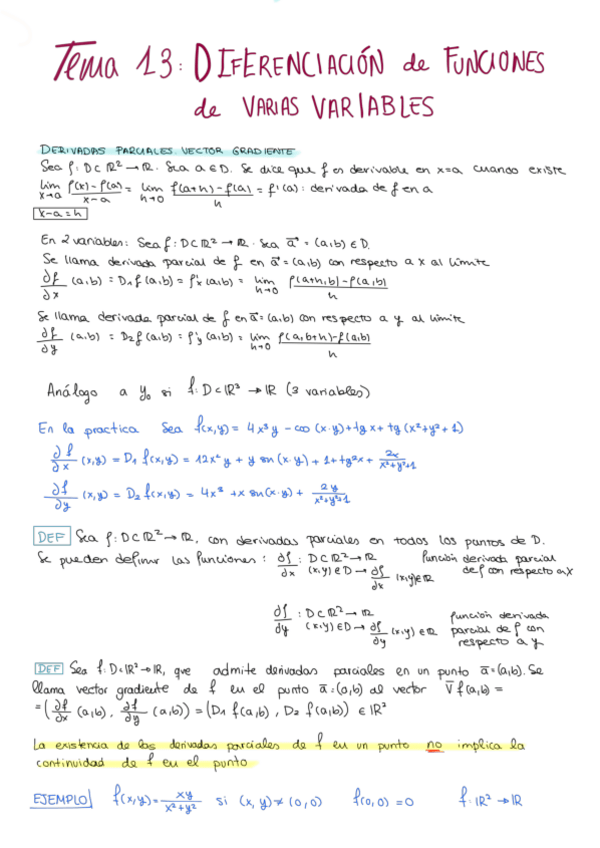 Tema 13: DIFERENCIACIÓN de FUNCIONES
de VARIAS VARIABLES
DERIVADAS PARCIALES. VECTOR GRADIENTE
Sea f: D⊂ℝ² → ℝ. Sea a∈D. Se dice que f es derivable en x=a cuando existe
lim x→a (f(x)-f(a))/(x-a) = lim h→0 (f(a+h)-f(a))/h = f'(a): derivada de f en a
x-a=h
En 2 variables: Sea f: D⊂ℝ² → ℝ. Sea a⃗ = (a,b) ∈ D.
Se llama derivada parcial de f en a⃗=(a,b) con respecto a x al límite
∂f/∂x (a,b) = D₁ f(a,b) = f'x (a,b) = lim h→0 (f(a+h,b)-f(a,b))/h
Se llama derivada parcial de f en a⃗=(a,b) con respecto a y al límite
∂f/∂y (a,b) = D₂ f(a,b) = f'y (a,b) = lim h→0 (f(a,b+h)-f(a,b))/h
Análogo a y₀ si f: D⊂ℝ³ → ℝ (3 variables)
En la practica Sea f(x,y) = 4x³y - cos (x·y) + tg x + tg (x²+y²+1)
∂f/∂x (x,y) = D₁ f(x,y) = 12x²y + y sen(x·y) + 1+tg²x + 2x/(x²+y²+1)
∂f/∂y (x,y) = D₂ f(x,y) = 4x³ + x sen(x·y) + 2y/(x²+y²+1)
DEF Sea f: D⊂ℝ² → ℝ, con derivadas parciales en todos los puntos de D.
Se pueden definir las funciones: ∂f/∂x : D⊂ℝ² → ℝ función derivada parcial
(x,y)∈D → ∂f/∂x (x,y)∈ℝ de f con respecto a x
∂f/∂y : D⊂ℝ² → ℝ función derivada
(x,y)∈D → ∂f/∂y (x,y)∈ℝ parcial de f con
respecto a y
DEF Sea f: D⊂ℝ² → ℝ, que admite derivadas parciales en un punto a̅=(a,b). Se
llama vector gradiente de f en el punto a̅=(a,b) al vector ∇̅f(a,b) =
= (∂f/∂x (a,b), ∂f/∂y (a,b)) = (D₁ f(a,b), D₂ f(a,b)) ∈ ℝ²
La existencia de las derivadas parciales de f en un punto no implica la
continuidad de f en el punto
EJEMPLO f(x,y) = xy/(x²+y²) si (x,y) ≠ (0,0) f(0,0) = 0 f: ℝ² → ℝ